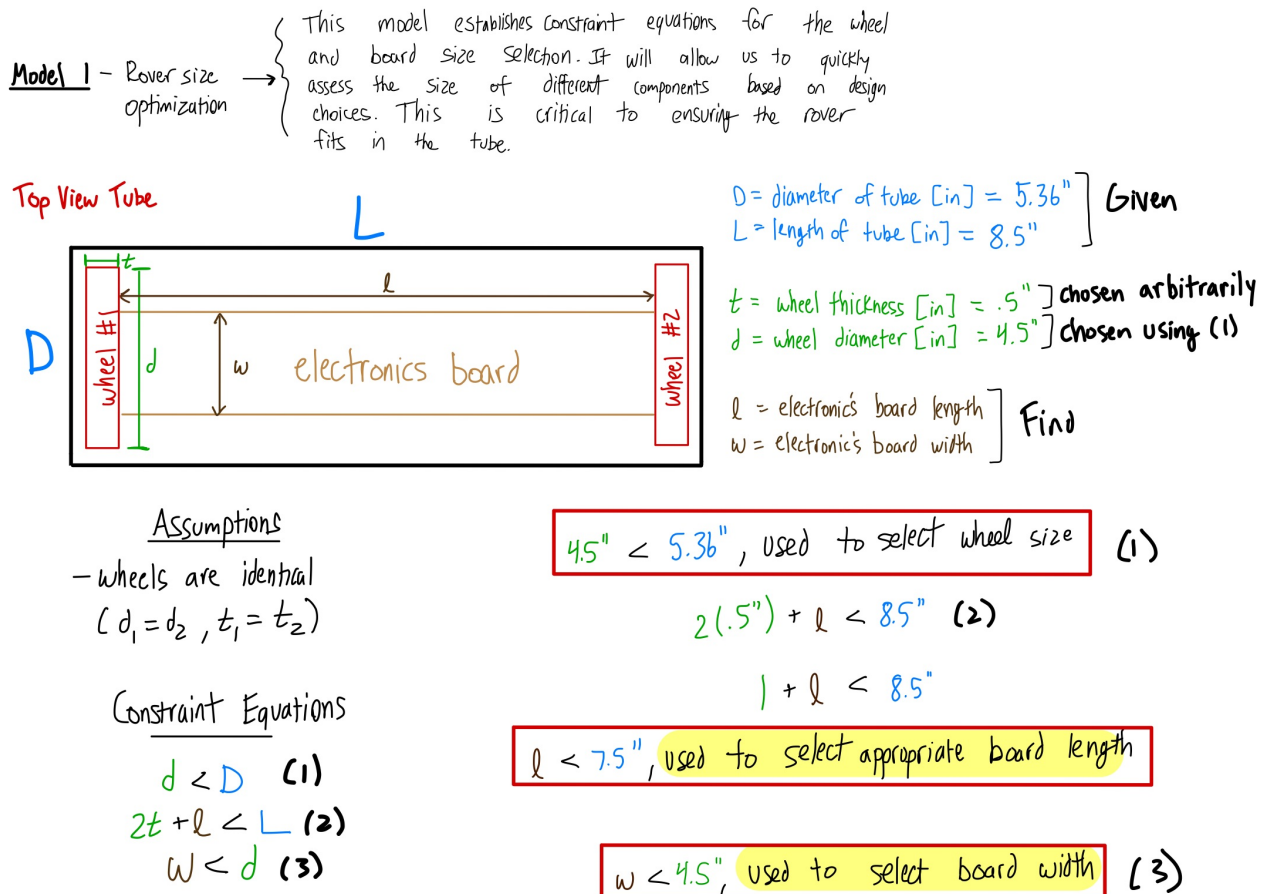 Model 1 - Rover size optimization →
This model establishes constraint equations for the wheel
and board size selection. It will allow us to quickly
assess the size of different components based on design
choices. This is critical to ensuring the rover
fits in the tube.
Top View Tube
L
D
t
l
wheel #1
d
w
electronics board
wheel #2
D = diameter of tube [in] = 5.36"
L = length of tube [in] = 8.5"
Given
t = wheel thickness [in] = .5" ] chosen arbitrarily
d = wheel diameter [in] = 4.5" ] chosen using (1)
l = electronic's board length
w = electronic's board width
Find
Assumptions
- wheels are identical
(d₁ = d₂, t₁ = t₂)
Constraint Equations
d < D (1)
2t + l < L (2)
w < d (3)
4.5" < 5.36", used to select wheel size (1)
2(.5") + l < 8.5" (2)
1 + l < 8.5"
l < 7.5", used to select appropriate board length
w < 4.5", used to select board width (3)